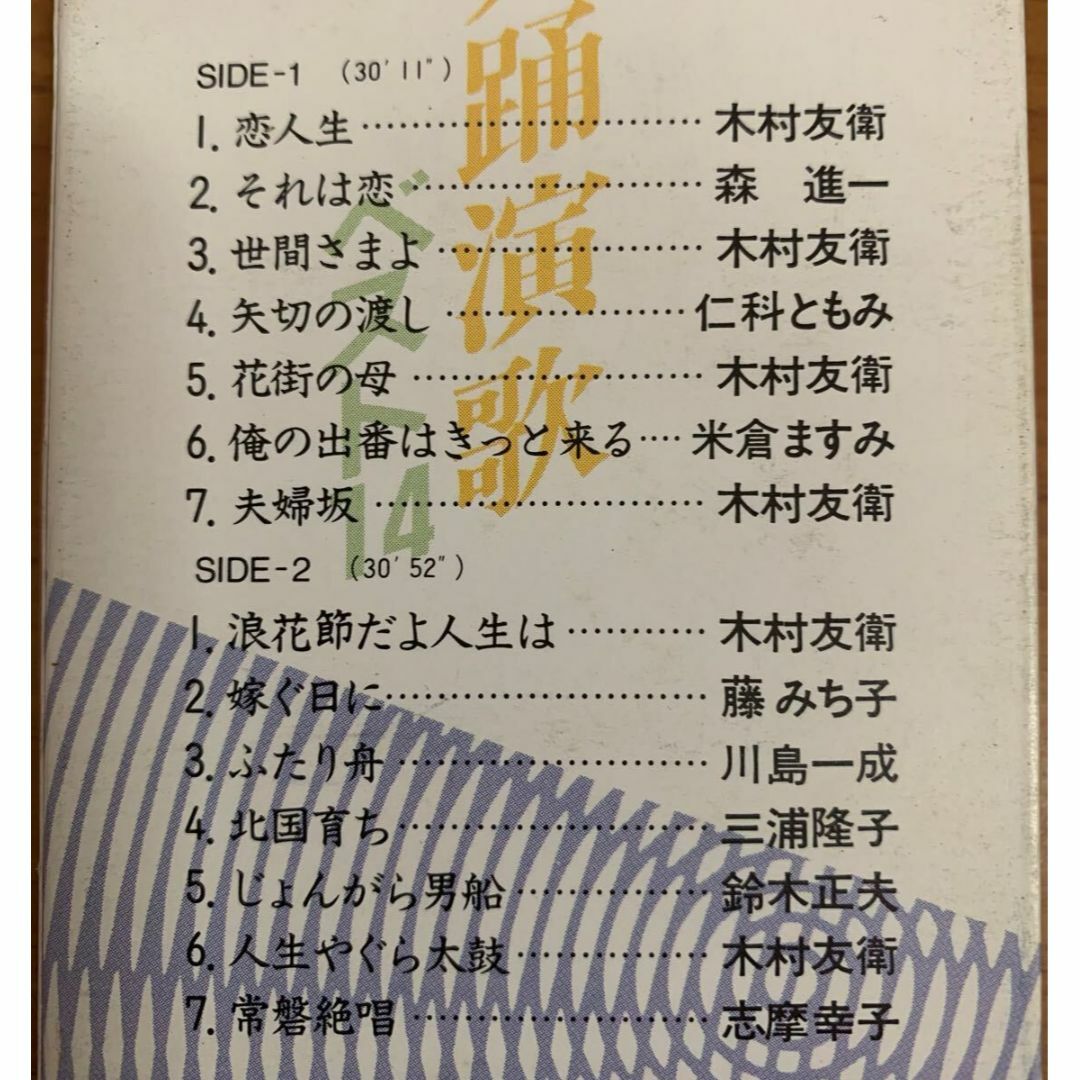 踊演歌
ベスト14
SIDE-1 (30'11")
1. 恋人生………………………木村友衛
2. それは恋……………………森 進一
3. 世間さまよ…………………木村友衛
4. 矢切の渡し………………仁科ともみ
5. 花街の母……………………木村友衛
6. 俺の出番はきっと来る‥‥米倉ますみ
7. 夫婦坂………………………木村友衛
SIDE-2 (30'52")
1. 浪花節だよ人生は…………木村友衛
2. 嫁ぐ日に……………………藤 みち子
3. ふたり舟……………………川島一成
4. 北国育ち……………………三浦隆子
5. じょんがら男船……………鈴木正夫
6. 人生やぐら太鼓……………木村友衛
7. 常磐絶唱……………………志摩幸子